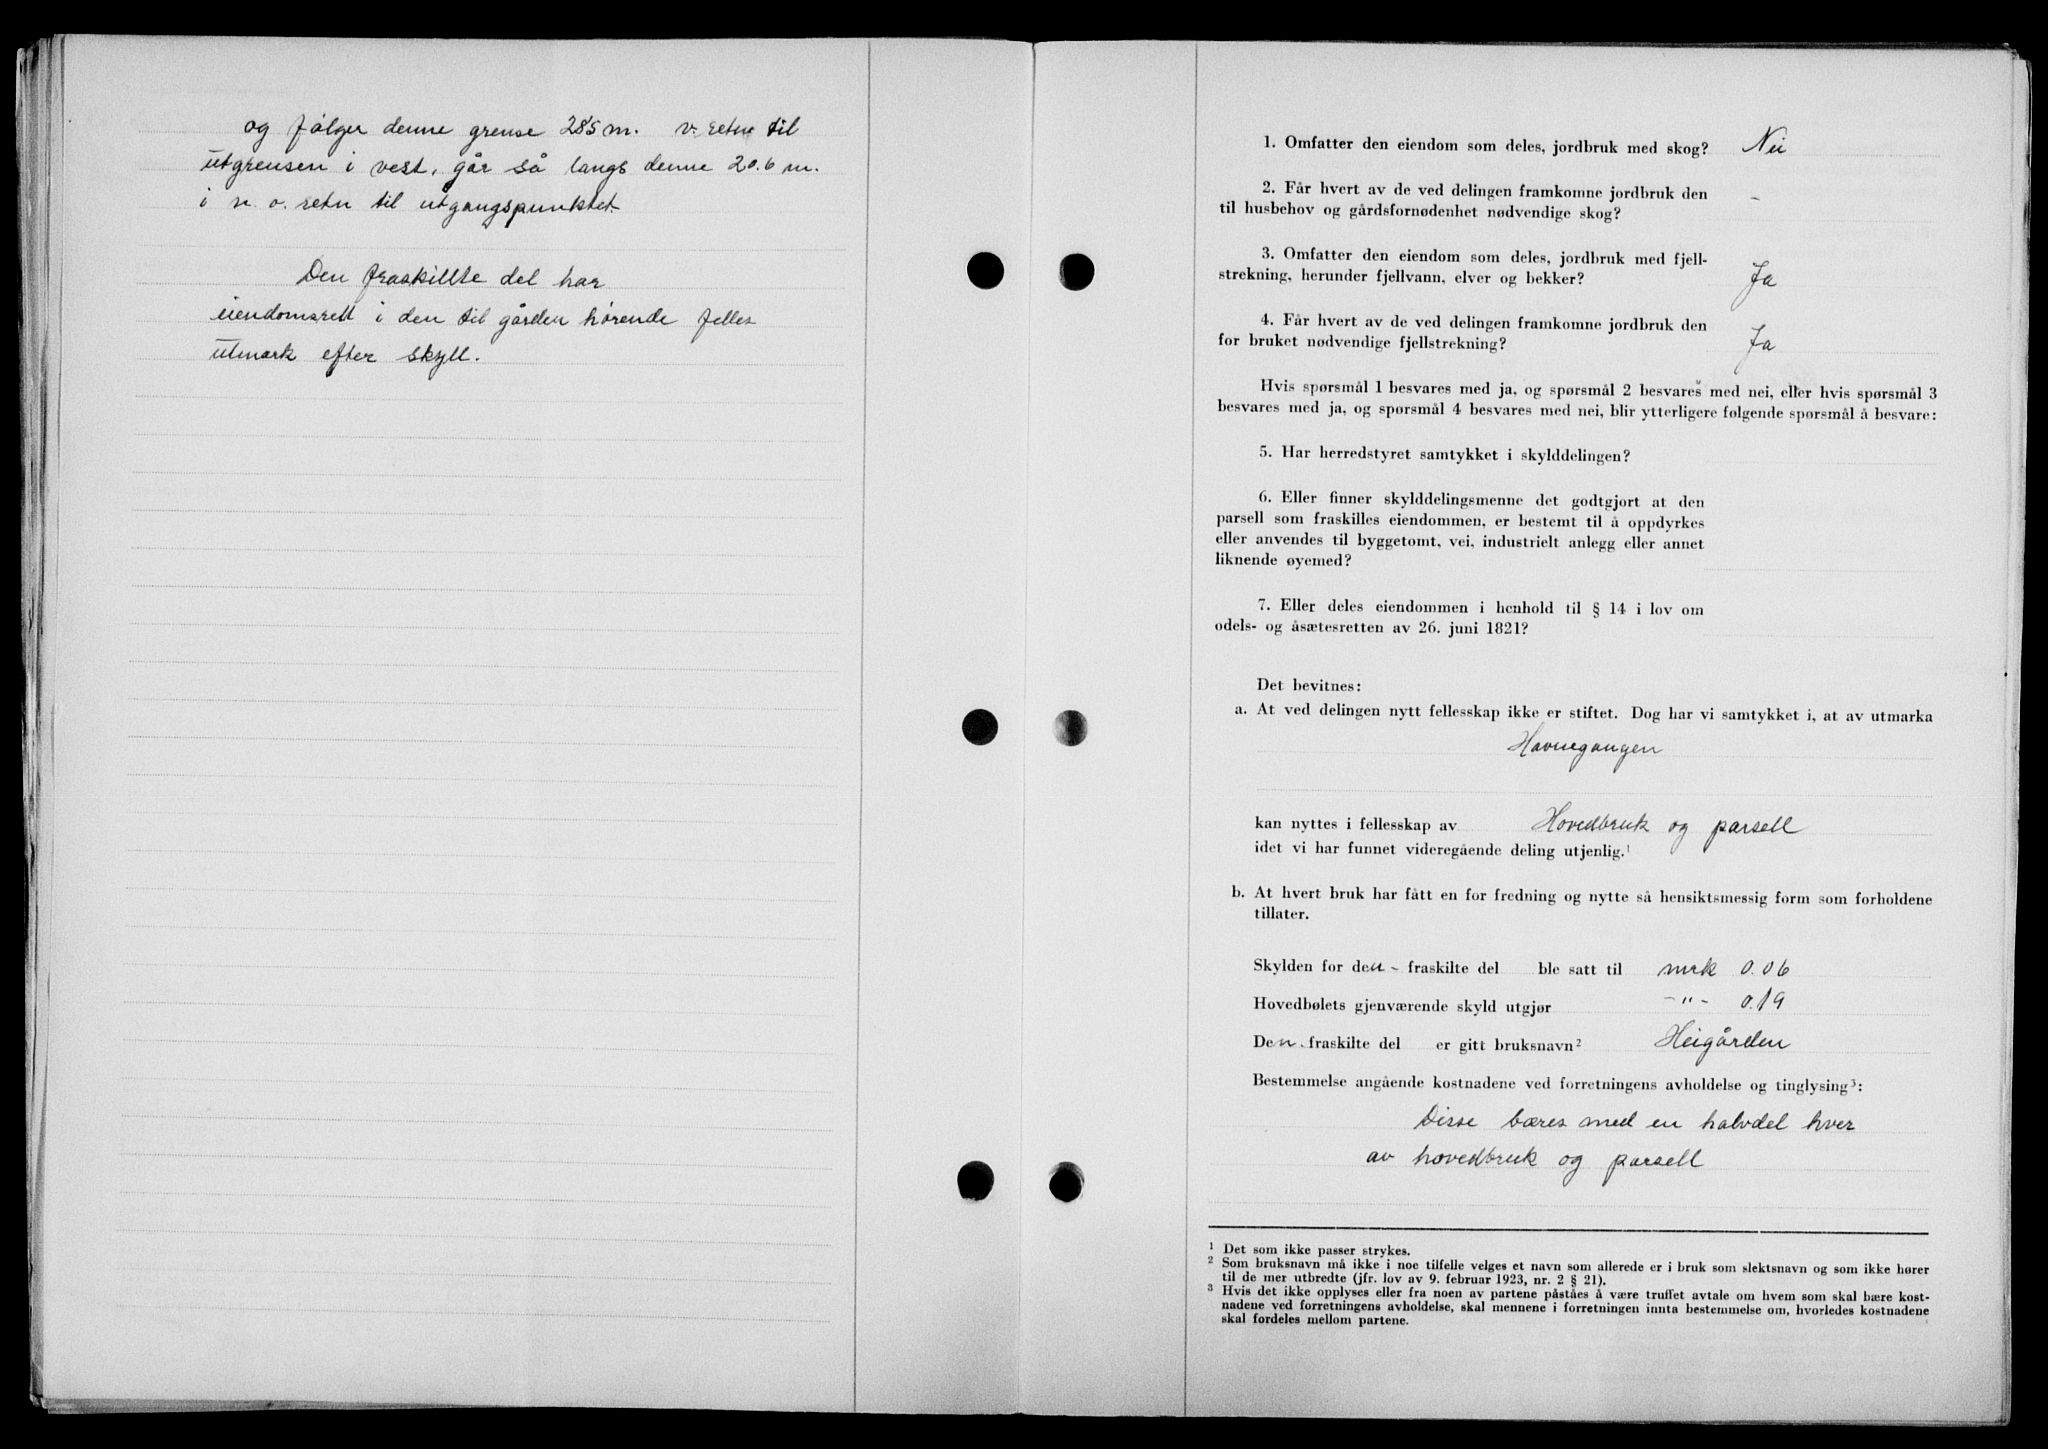 og følger denne grense 285 m. v. retn til
utgrensen i vest, går så langs denne 20.6 m.
i n. o. retn til utgangspunktet.
Den fraskillte del har
eiendomsrett i den til gården hørende felles
utmark efter skyll.
1. Omfatter den eiendom som deles, jordbruk med skog? Nei
2. Får hvert av de ved delingen framkomne jordbruk den
til husbehov og gårdsfornødenhet nødvendige skog? -
3. Omfatter den eiendom som deles, jordbruk med fjell-
strekning, herunder fjellvann, elver og bekker? Ja
4. Får hvert av de ved delingen framkomne jordbruk den
for bruket nødvendige fjellstrekning? Ja
Hvis spørsmål 1 besvares med ja, og spørsmål 2 besvares med nei, eller hvis spørsmål 3
besvares med ja, og spørsmål 4 besvares med nei, blir ytterligere følgende spørsmål å besvare:
5. Har herredstyret samtykket i skylddelingen?
6. Eller finner skylddelingsmenne det godtgjort at den
parsell som fraskilles eiendommen, er bestemt til å oppdyrkes
eller anvendes til byggetomt, vei, industrielt anlegg eller annet
liknende øyemed?
7. Eller deles eiendommen i henhold til § 14 i lov om
odels- og åsætesretten av 26. juni 1821?
Det bevitnes:
a. At ved delingen nytt fellesskap ikke er stiftet. Dog har vi samtykket i, at av utmarka
Havnegangen
kan nyttes i fellesskap av Hovedbruk og parsell
idet vi har funnet videregående deling utjenlig.¹
b. At hvert bruk har fått en for fredning og nytte så hensiktsmessig form som forholdene
tillater.
Skylden for den - fraskilte del ble satt til mrk 0.06
Hovedbølets gjenværende skyld utgjør -"- 0.19
Den. fraskilte del er gitt bruksnavn² Heigården
Bestemmelse angående kostnadene ved forretningens avholdelse og tinglysing³:
Disse bæres med en halvdel hver
av hovedbruk og parsell
¹ Det som ikke passer strykes.
² Som bruksnavn må ikke i noe tilfelle velges et navn som allerede er i bruk som slektsnavn og som ikke hører
til de mer utbredte (jfr. lov av 9. februar 1923, nr. 2 § 21).
³ Hvis det ikke opplyses eller fra noen av partene påståes å være truffet avtale om hvem som skal bære kost-
nadene ved forretningens avholdelse, skal mennene i forretningen innta bestemmelse om, hvorledes kostnadene
skal fordeles mellom partene.